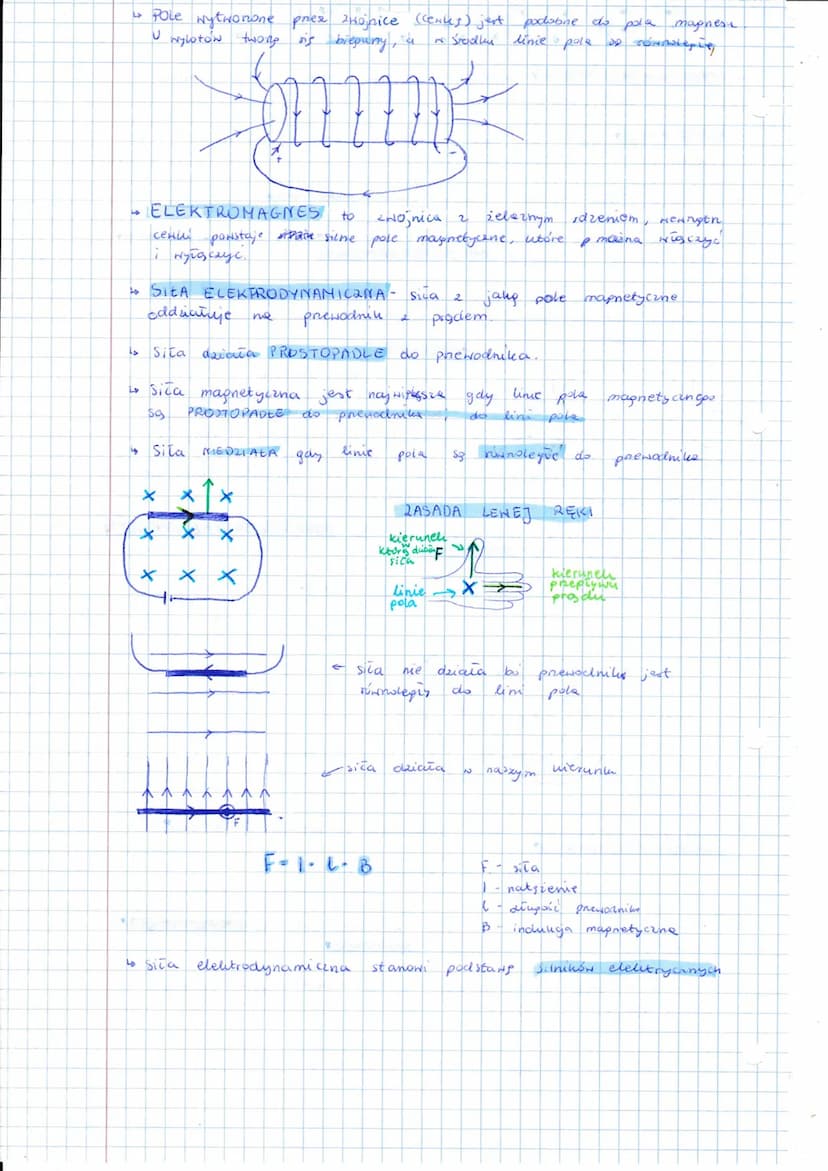 ↳ Pole wytworzone przez zwojnice (cewkę) jest podobne do pola magnesu.
U wylotów tworzą się bieguny, a w środku linie pola są równoległe
+ -
↳ ELEKTROMAGNES to zwojnica z żelaznym rdzeniem, wewnątrz
cewki powstaje silne pole magnetyczne, które można włączyć
i wyłączyć.
↳ SIŁA ELEKTRODYNAMICZNA - siła z jaką pole magnetyczne
oddziałuje na przewodnik z prądem.
↳ Siła działa PROSTOPADLE do przewodnika.
↳ Siła magnetyczna jest największa gdy linie pola magnetycznego
są PROSTOPADŁE do przewodnika i do lini pola
↳ Siła NIEDZIAŁA gdy linie pola są równoległe do przewodnika
ZASADA LEWEJ RĘKI
kierunek
w
którą działa F
siła
linie
pola
kierunek
przepływu
prądu
← siła nie działa bo przewodnik jest
równoległy do lini pola
siła działa w naszym kierunku
F
F = I · L · B
F - siła
I - natężenie
l - długość przewodnika
B - indukcja magnetyczna
↳ Siła elektrodynamiczna stanowi podstawę silników elektrycznych